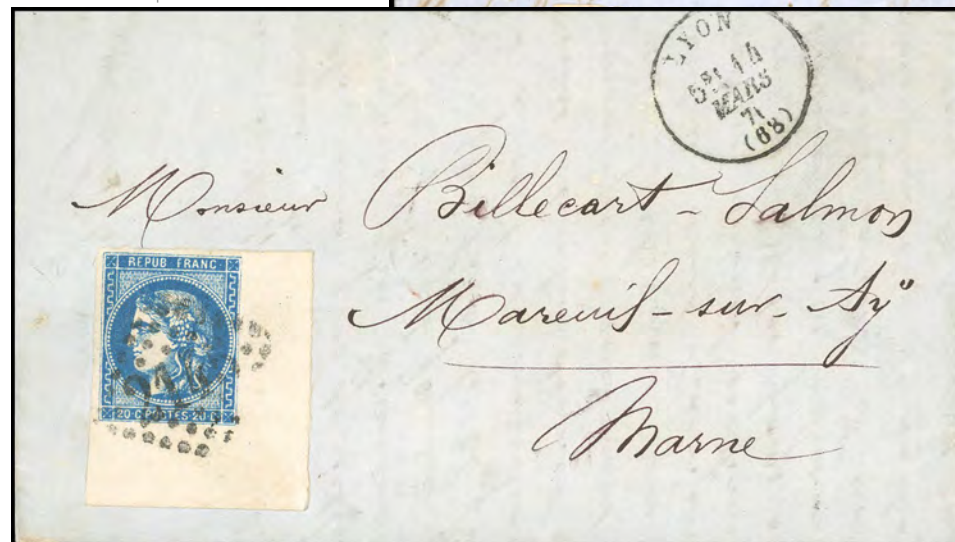 LYON
5E 14
MARS
71
(68)
Monsieur Billecart - Salmon
Mareuil - sur - Aÿ
Marne
REPUB FRANC
20 C POSTES 20 C